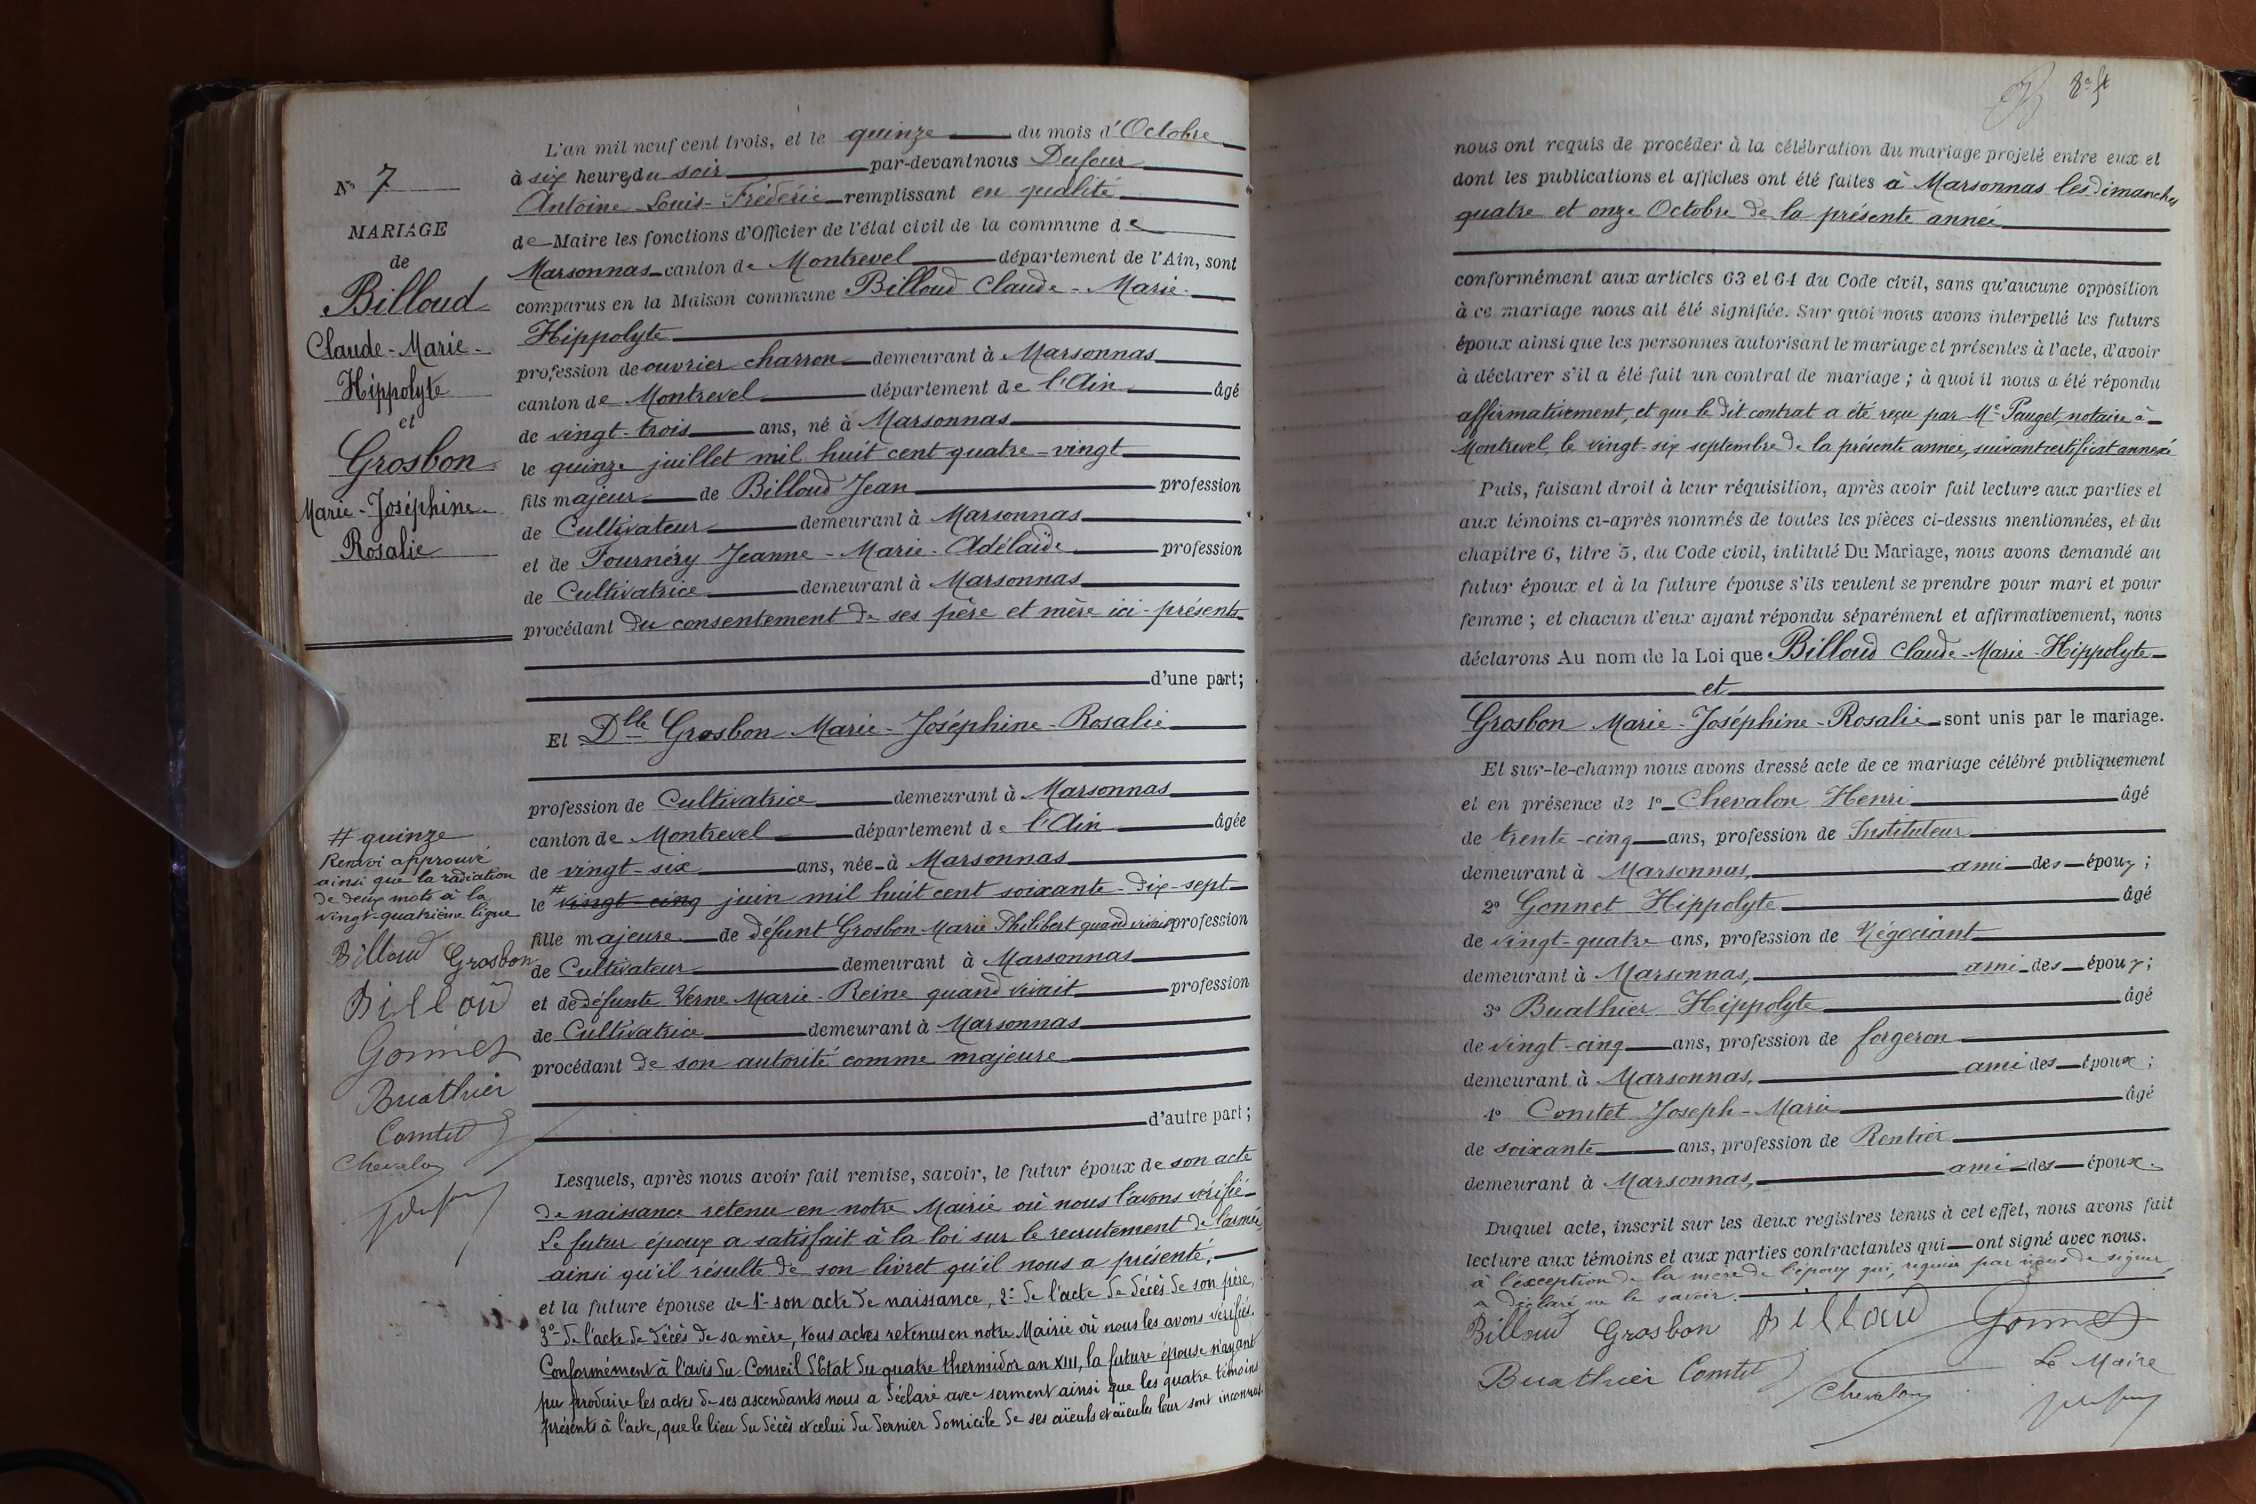 N° 7
MARIAGE
de
Billoud
Claude-Marie-
Hippolyte
et
Grosbon
Marie-Joséphine-
Rosalie
# quinze
Renvoi approuvé
ainsi que la radiation
de deux mots à la
vingt-quatrième ligne
Billoud Grosbon
Billoud
Gonnet
Buathier
Comtet
Chevalon
L'an mil neuf cent trois, et le quinze du mois d'Octobre
à six heures du soir par-devant nous Dufour
Antoine-Louis-Frédéric remplissant en qualité
de Maire les fonctions d'Officier de l'état civil de la commune de
Marsonnas canton de Montrevel département de l'Ain, sont
comparus en la Maison commune Billoud Claude-Marie-
Hippolyte
profession de ouvrier charron demeurant à Marsonnas
canton de Montrevel département de l'Ain âgé
de vingt-trois ans, né à Marsonnas
le quinze juillet mil huit cent quatre-vingt
fils majeur de Billoud Jean profession
de Cultivateur demeurant à Marsonnas
et de Fournéry Jeanne-Marie-Adélaïde profession
de Cultivatrice demeurant à Marsonnas
procédant du consentement de ses père et mère ici-présents
d'une part;
Et Dlle Grosbon Marie-Joséphine-Rosalie
profession de Cultivatrice demeurant à Marsonnas
canton de Montrevel département de l'Ain âgée
de vingt-six ans, née à Marsonnas
le # vingt-cinq juin mil huit cent soixante-dix-sept
fille majeure de défunt Grosbon Marie Philibert quand vivait profession
de Cultivateur demeurant à Marsonnas
et de défunte Verne Marie-Reine quand vivait profession
de Cultivatrice demeurant à Marsonnas
procédant de son autorité comme majeure
d'autre part;
Lesquels, après nous avoir fait remise, savoir, le futur époux de son acte
de naissance retenu en notre Mairie où nous l'avons vérifié
Le futur époux a satisfait à la loi sur le recrutement de l'armée
ainsi qu'il résulte de son livret qu'il nous a présenté,
et la future épouse de 1° son acte de naissance, 2° de l'acte de décès de son père,
3° de l'acte de décès de sa mère, tous actes retenus en notre Mairie où nous les avons vérifiés.
Conformément à l'avis du Conseil d'Etat du quatre thermidor an XIII, la future épouse n'ayant
pu produire les actes de ses ascendants nous a déclaré avec serment ainsi que les quatre témoins
présents à l'acte, que le lieu du décès et celui du dernier domicile de ses aïeuls et aïeules leur sont inconnus.
nous ont requis de procéder à la célébration du mariage projeté entre eux et
dont les publications et affiches ont été faites à Marsonnas les dimanches
quatre et onze Octobre de la présente année
conformément aux articles 63 et 64 du Code civil, sans qu'aucune opposition
à ce mariage nous ait été signifiée. Sur quoi nous avons interpellé les futurs
époux ainsi que les personnes autorisant le mariage et présentes à l'acte, d'avoir
à déclarer s'il a été fait un contrat de mariage; à quoi il nous a été répondu
affirmativement, et que le dit contrat a été reçu par Me Pauget, notaire à
Montrevel, le vingt-six septembre de la présente année, suivant certificat annexé
Puis, faisant droit à leur réquisition, après avoir fait lecture aux parties et
aux témoins ci-après nommés de toutes les pièces ci-dessus mentionnées, et du
chapitre 6, titre 5, du Code civil, intitulé Du Mariage, nous avons demandé au
futur époux et à la future épouse s'ils veulent se prendre pour mari et pour
femme; et chacun d'eux ayant répondu séparément et affirmativement, nous
déclarons Au nom de la Loi que Billoud Claude-Marie-Hippolyte
et
Grosbon Marie-Joséphine-Rosalie sont unis par le mariage.
Et sur-le-champ nous avons dressé acte de ce mariage célébré publiquement
et en présence de 1° Chevalon Henri âgé
de trente-cinq ans, profession de Instituteur
demeurant à Marsonnas, ami des époux;
2° Gonnet Hippolyte âgé
de vingt-quatre ans, profession de Négociant
demeurant à Marsonnas, ami des époux;
3° Buathier Hippolyte âgé
de vingt-cinq ans, profession de forgeron
demeurant à Marsonnas, ami des époux;
4° Comtet Joseph-Marie âgé
de soixante ans, profession de Rentier
demeurant à Marsonnas, ami des époux.
Duquel acte, inscrit sur les deux registres tenus à cet effet, nous avons fait
lecture aux témoins et aux parties contractantes qui ont signé avec nous.
à l'exception de la mère de l'époux qui, requise par nous de signer
a déclaré ne le savoir.
Billoud Grosbon Billoud Gonnet
Buathier Comtet Chevalon Le Maire